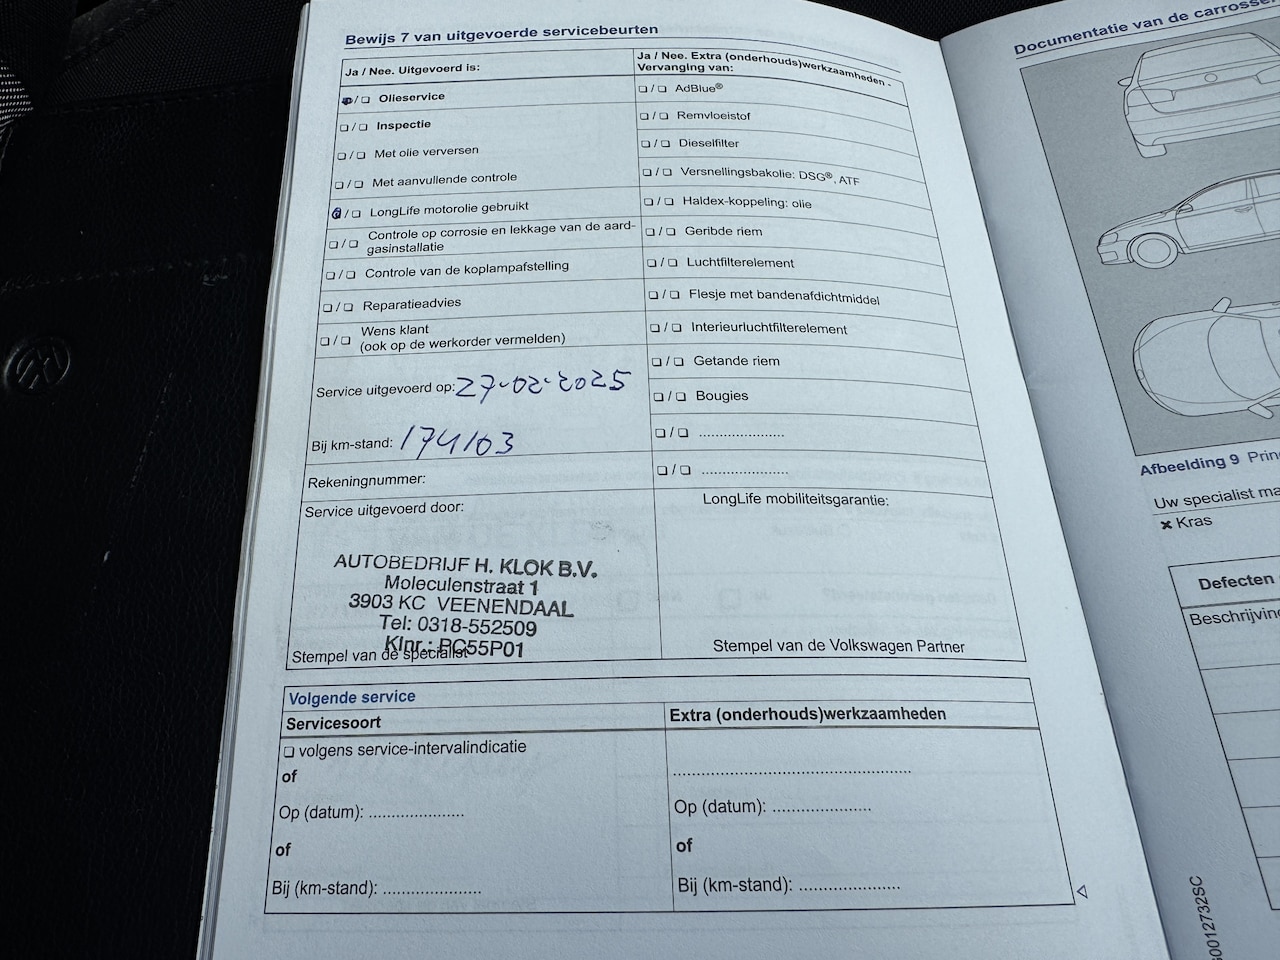 Bewijs 7 van uitgevoerde servicebeurten
Ja / Nee. Uitgevoerd is:
❏/❏ Olieservice
❏/❏ Inspectie
❏/❏ Met olie verversen
❏/❏ Met aanvullende controle
❏/❏ LongLife motorolie gebruikt
❏/❏ Controle op corrosie en lekkage van de aard-
gasinstallatie
❏/❏ Controle van de koplampafstelling
❏/❏ Reparatieadvies
❏/❏ Wens klant
(ook op de werkorder vermelden)
Service uitgevoerd op: 27-02-2025
Bij km-stand: 174103
Rekeningnummer:
Service uitgevoerd door:
AUTOBEDRIJF H. KLOK B.V.
Moleculenstraat 1
3903 KC VEENENDAAL
Tel: 0318-552509
Klnr.: PC55P01
Stempel van de specialist
Ja / Nee. Extra (onderhouds)werkzaamheden -
Vervanging van:
❏/❏ AdBlue®
❏/❏ Remvloeistof
❏/❏ Dieselfilter
❏/❏ Versnellingsbakolie: DSG®, ATF
❏/❏ Haldex-koppeling: olie
❏/❏ Geribde riem
❏/❏ Luchtfilterelement
❏/❏ Flesje met bandenafdichtmiddel
❏/❏ Interieurluchtfilterelement
❏/❏ Getande riem
❏/❏ Bougies
❏/❏ .....................
❏/❏ .....................
LongLife mobiliteitsgarantie:
Stempel van de Volkswagen Partner
Volgende service
Servicesoort
❏ volgens service-intervalindicatie
of
Op (datum): .....................
of
Bij (km-stand): .....................
Extra (onderhouds)werkzaamheden
..................................................
Op (datum): .....................
of
Bij (km-stand): .....................
Documentatie van de
Afbeelding 9
Uw specialist
✖ Kras
Defecten
0012732SC